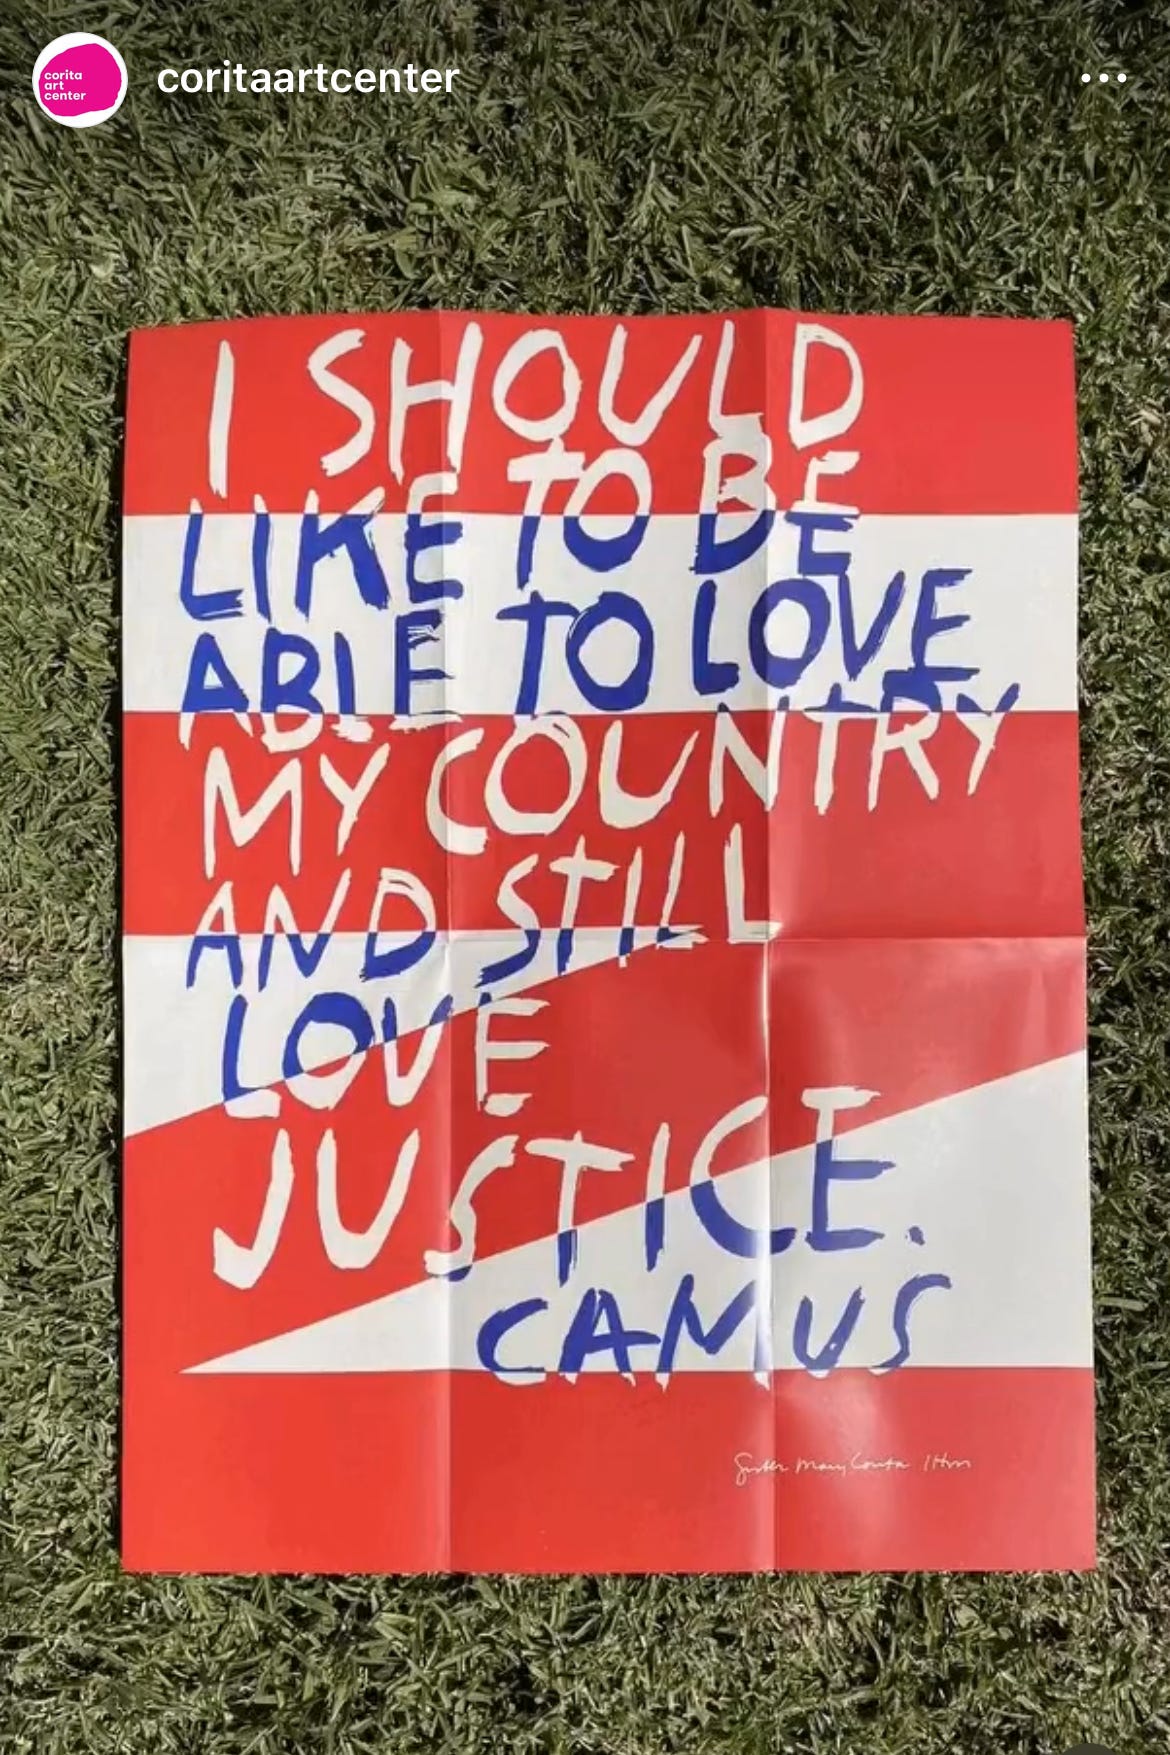 corita
art
center
coritaartcenter
I SHOULD
LIKE TO BE
ABLE TO LOVE
MY COUNTRY
AND STILL
LOVE
JUSTICE.
CAMUS
Sister Mary Corita IHM